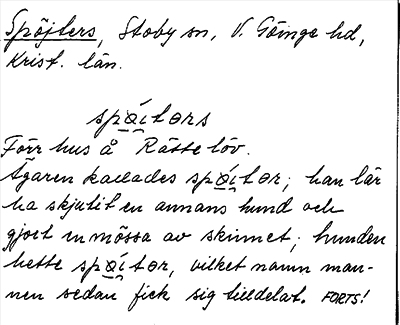 Spöjters, Stoby sn, V. Göinge hd,
Krist. län.
spö́i̯tərs
Förr hus å Rättelöv.
Ägaren kallades spö́i̯tər; han lär
ha skjutit en annans hund och
gjort en mössa av skinnet; hunden
hette spö́i̯tər, vilket namn man-
nen sedan fick sig tilldelat. FORTS!